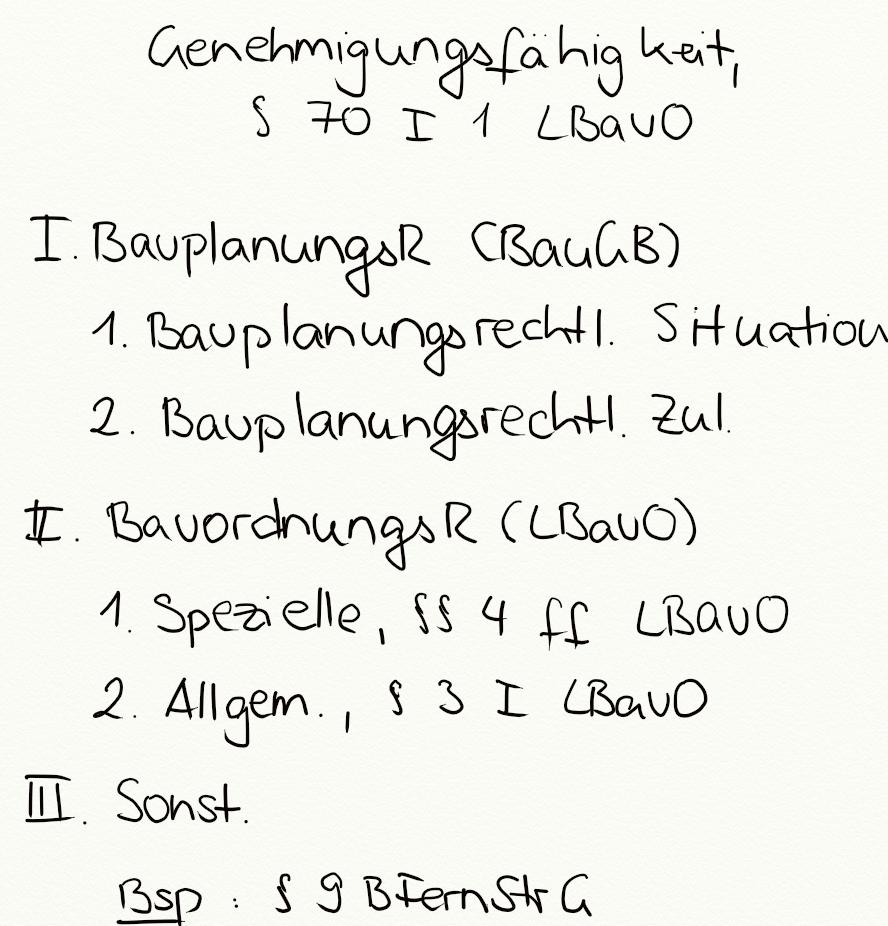 Genehmigungsfähigkeit,
§ 70 I 1 LBauO
I. BauplanungsR (BauGB)
1. Bauplanungsrechtl. Situation
2. Bauplanungsrechtl. Zul.
II. BauordnungsR (LBauO)
1. Spezielle, §§ 4 ff LBauO
2. Allgem., § 3 I LBauO
III. Sonst.
Bsp : § 9 BFernStrG